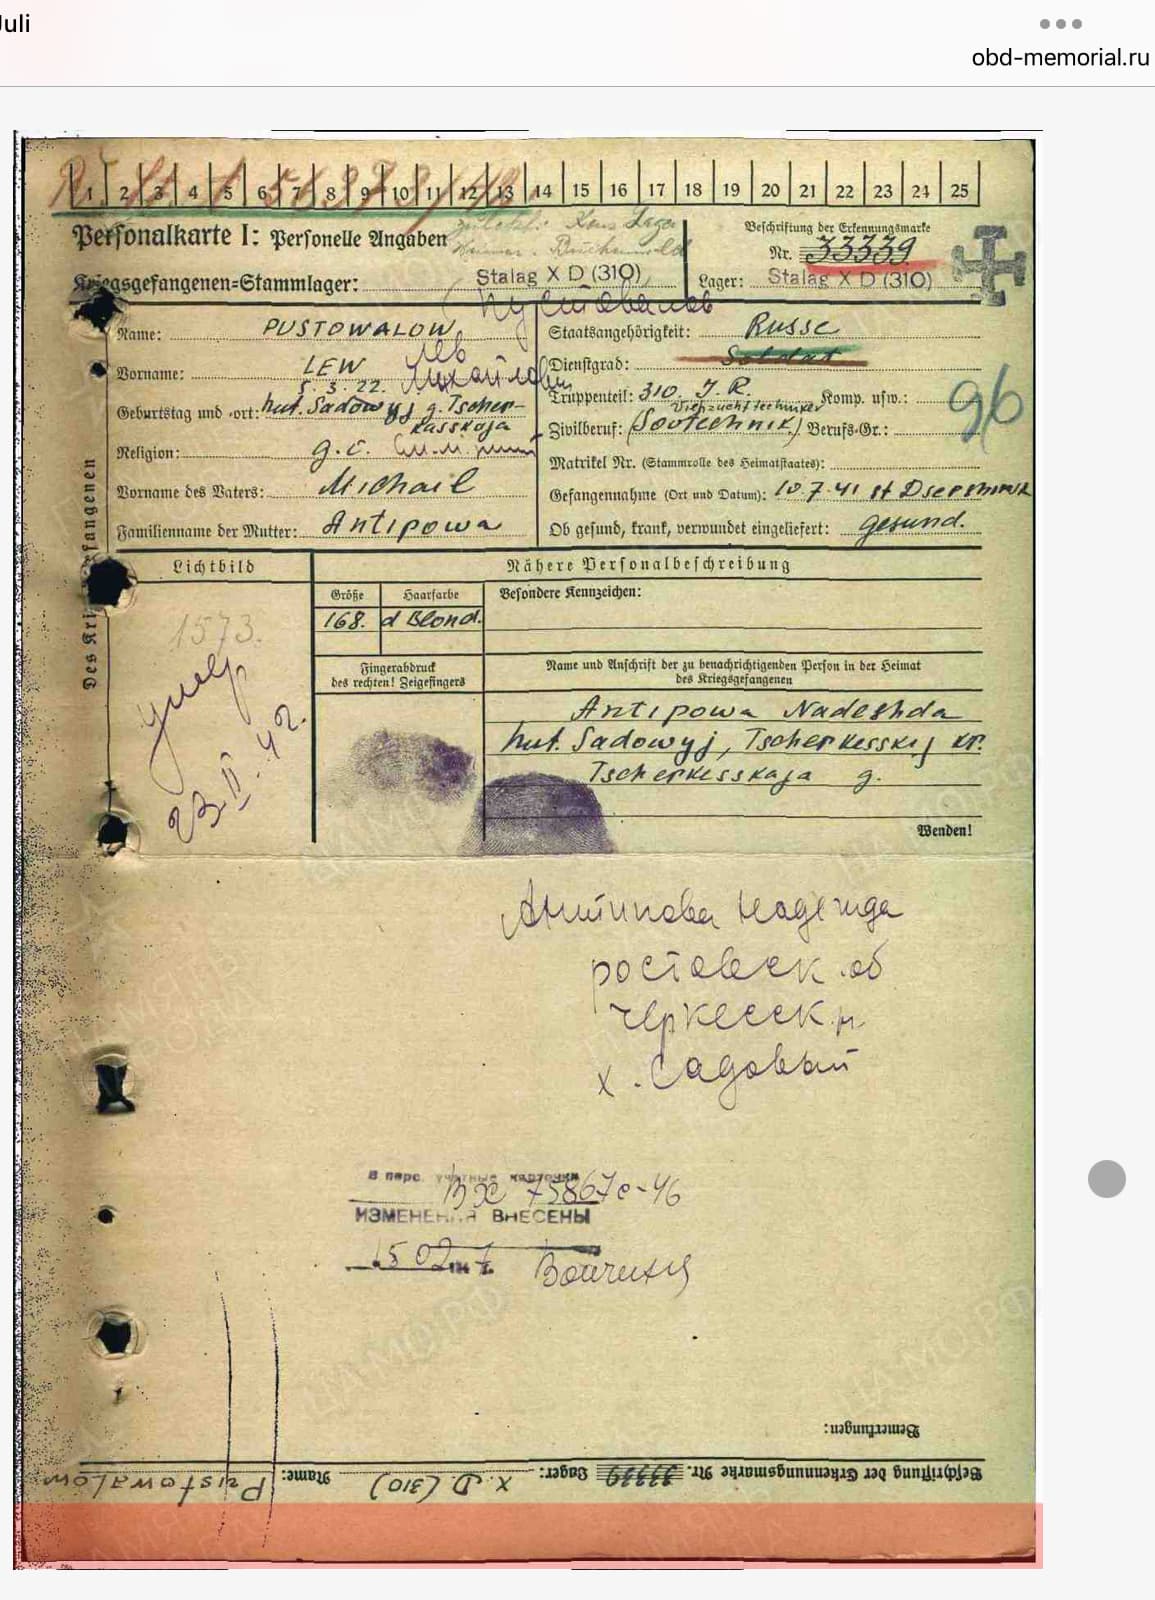 Juli
obd-memorial.ru
1 2 3 4 5 6 7 8 9 10 11 12 13 14 15 16 17 18 19 20 21 22 23 24 25
Personalkarte I: Personelle Angaben
Buchenwald
Beschriftung der Erkennungsmarke
Nr. 33339
Kriegsgefangenen-Stammlager: Stalag X D (310)
Lager: Stalag X D (310)
Пустовалов
Des Kriegsgefangenen
Name: PUSTOWALOW
Vorname: LEW Лев
Михайлович
Geburtstag und -ort: 5. 3. 22. hut. Sadowyj g. Tscher-
kasskaja
Religion: g. c.
Vorname des Vaters: Michail
Familienname der Mutter: Antipowa
Staatsangehörigkeit: Russe
Dienstgrad: Soldat
Truppenteil: 310. J. R. Komp. usw.:
Viehzuchttechniker
Zivilberuf: (Sootechnik) Berufs-Gr.:
96
Matrikel Nr. (Stammrolle des Heimatstaates):
Gefangennahme (Ort und Datum): 10.7.41 st
Ob gesund, krank, verwundet eingeliefert: gesund.
Lichtbild
Nähere Personalbeschreibung
1573.
умер
23.II.42.
Größe
168.
Haarfarbe
d Blond.
Besondere Kennzeichen:
Fingerabdruck
des rechten! Zeigefingers
Name und Anschrift der zu benachrichtigenden Person in der Heimat
des Kriegsgefangenen
Antipowa Nadeshda
hut. Sadowyj, Tscherkesskij kr.
Tscherkesskaja g.
Wenden!
Антипова Надежда
ростовск. об
черкесск р
х. Садовый
В перс. учетные карточки
Вх 75867с-46
ИЗМЕНЕНИЯ ВНЕСЕНЫ
Bemerkungen:
Beschriftung der Erkennungsmarke Nr. 33339 Lager: X D (310) Name: Pustowalow